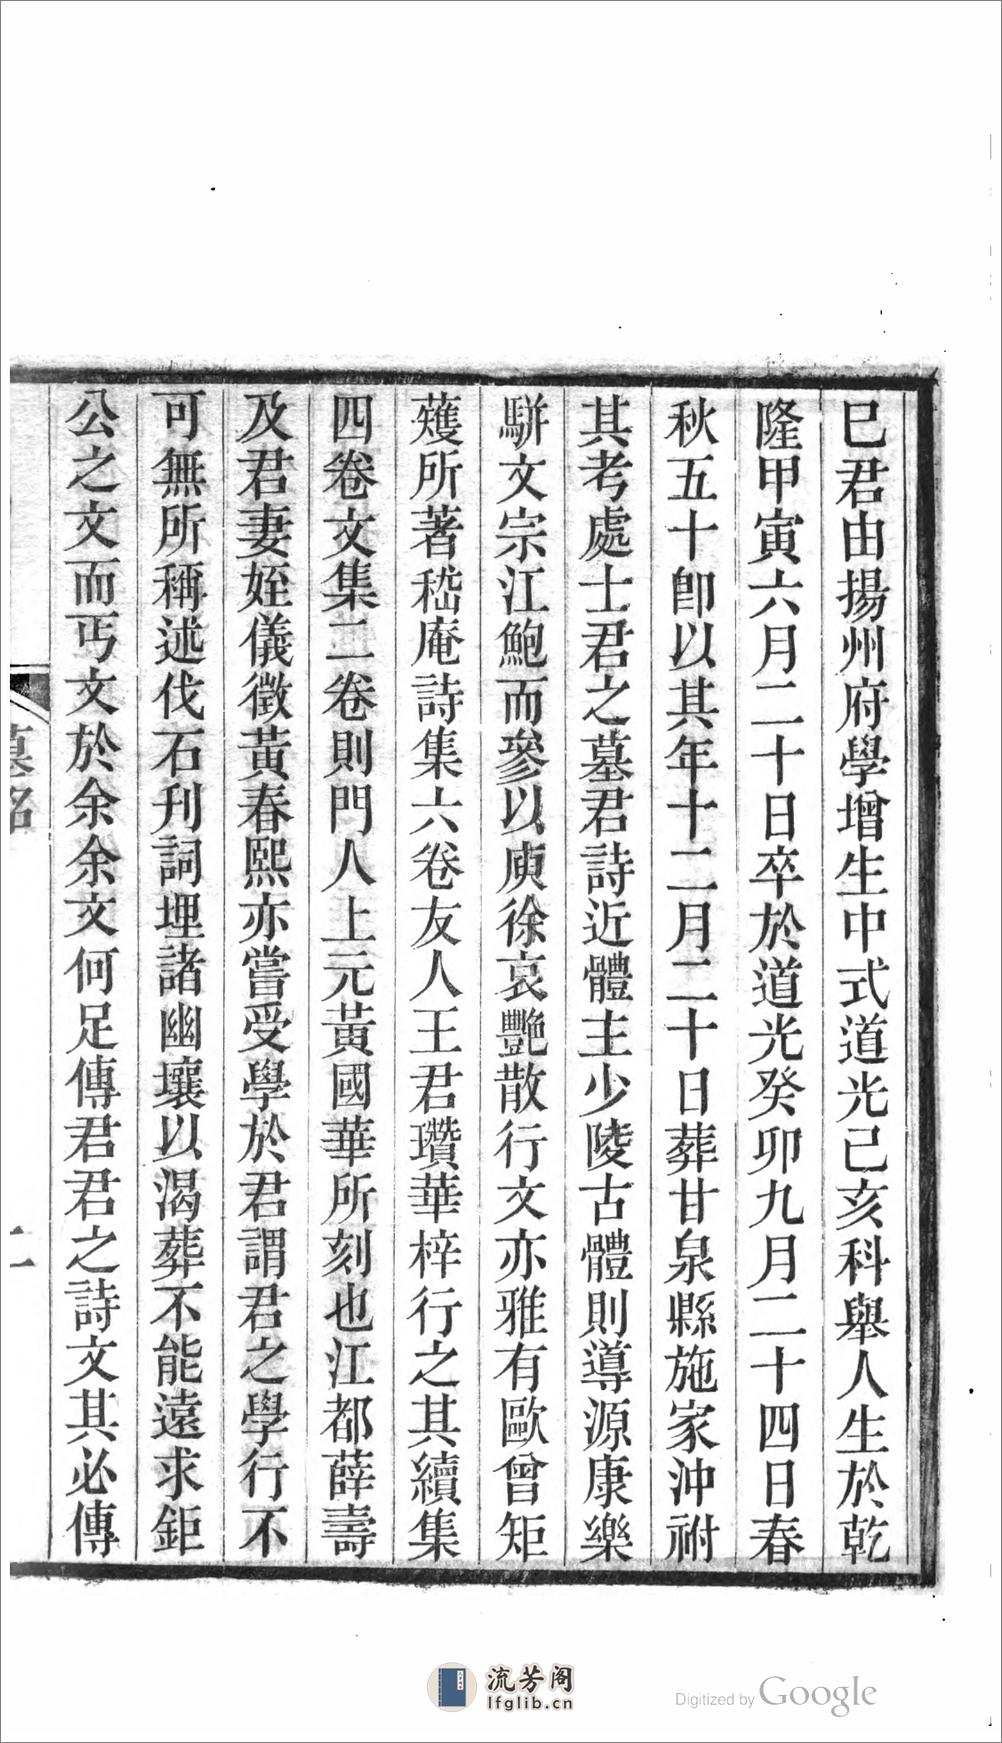 已君由揚州府學增生中式道光己亥科舉人生於乾
隆甲寅六月二十日卒於道光癸卯九月二十四日春
秋五十卽以其年十二月二十日葬甘泉縣施家沖祔
其考處士君之墓君詩近體主少陵古體則導源康樂
駢文宗江鮑而參以庾徐哀艷散行文亦雅有歐曾矩
蒦所著嵇庵詩集六卷友人王君瓚華梓行之其續集
四卷文集二卷則門人上元黃國華所刻也江都薛壽
及君妻姪儀徵黃春熙亦嘗受學於君謂君之學行不
可無所稱述伐石刊詞埋諸幽壤以渴葬不能遠求鉅
公之文而丐文於余余文何足傳君君之詩文其必傳
墓銘
二
流芳阁
lfglib.cn
Digitized by Google